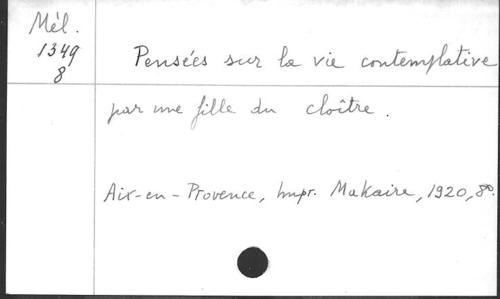 Mél.
1349
8
Pensées sur la vie contemplative
par une fille du cloître.
Aix-en-Provence, Impr. Makaire, 1920, 8º.